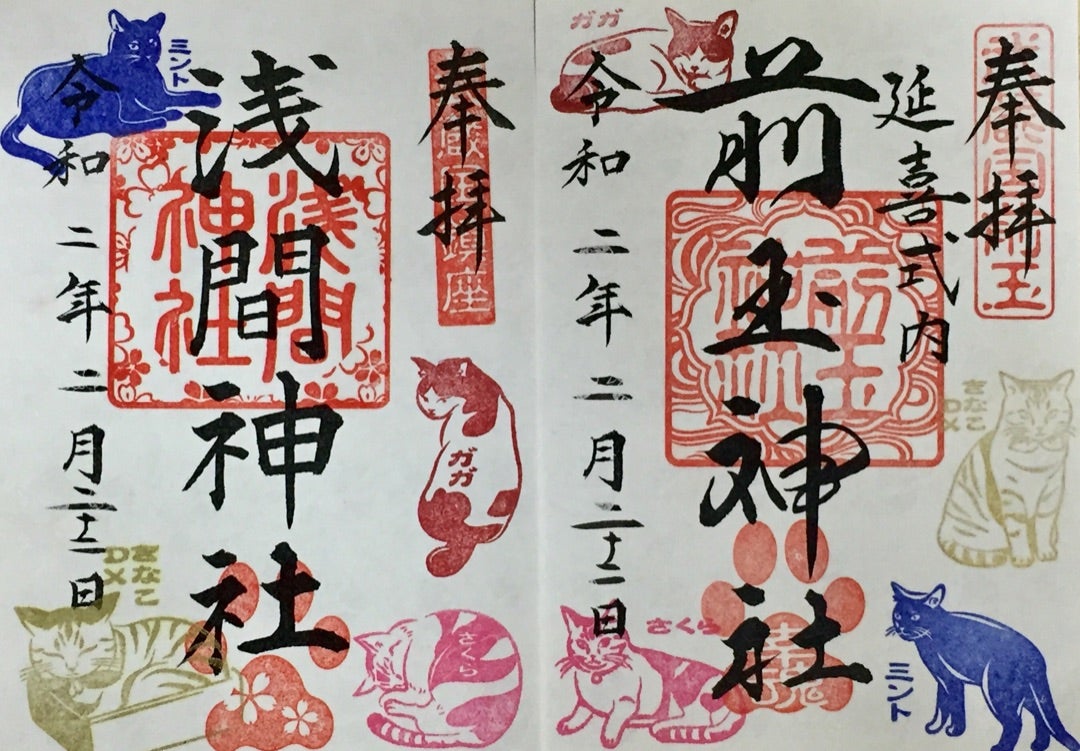 奉拝
延喜式内
前玉神社
前玉神社
令和二年二月二十二日
ガガ
きなこ
DX
さくら
ミント
奉拝
鎮座
浅間神社
浅間
神社
令和二年二月二十二日
ミント
ガガ
きなこ
DX
さくら